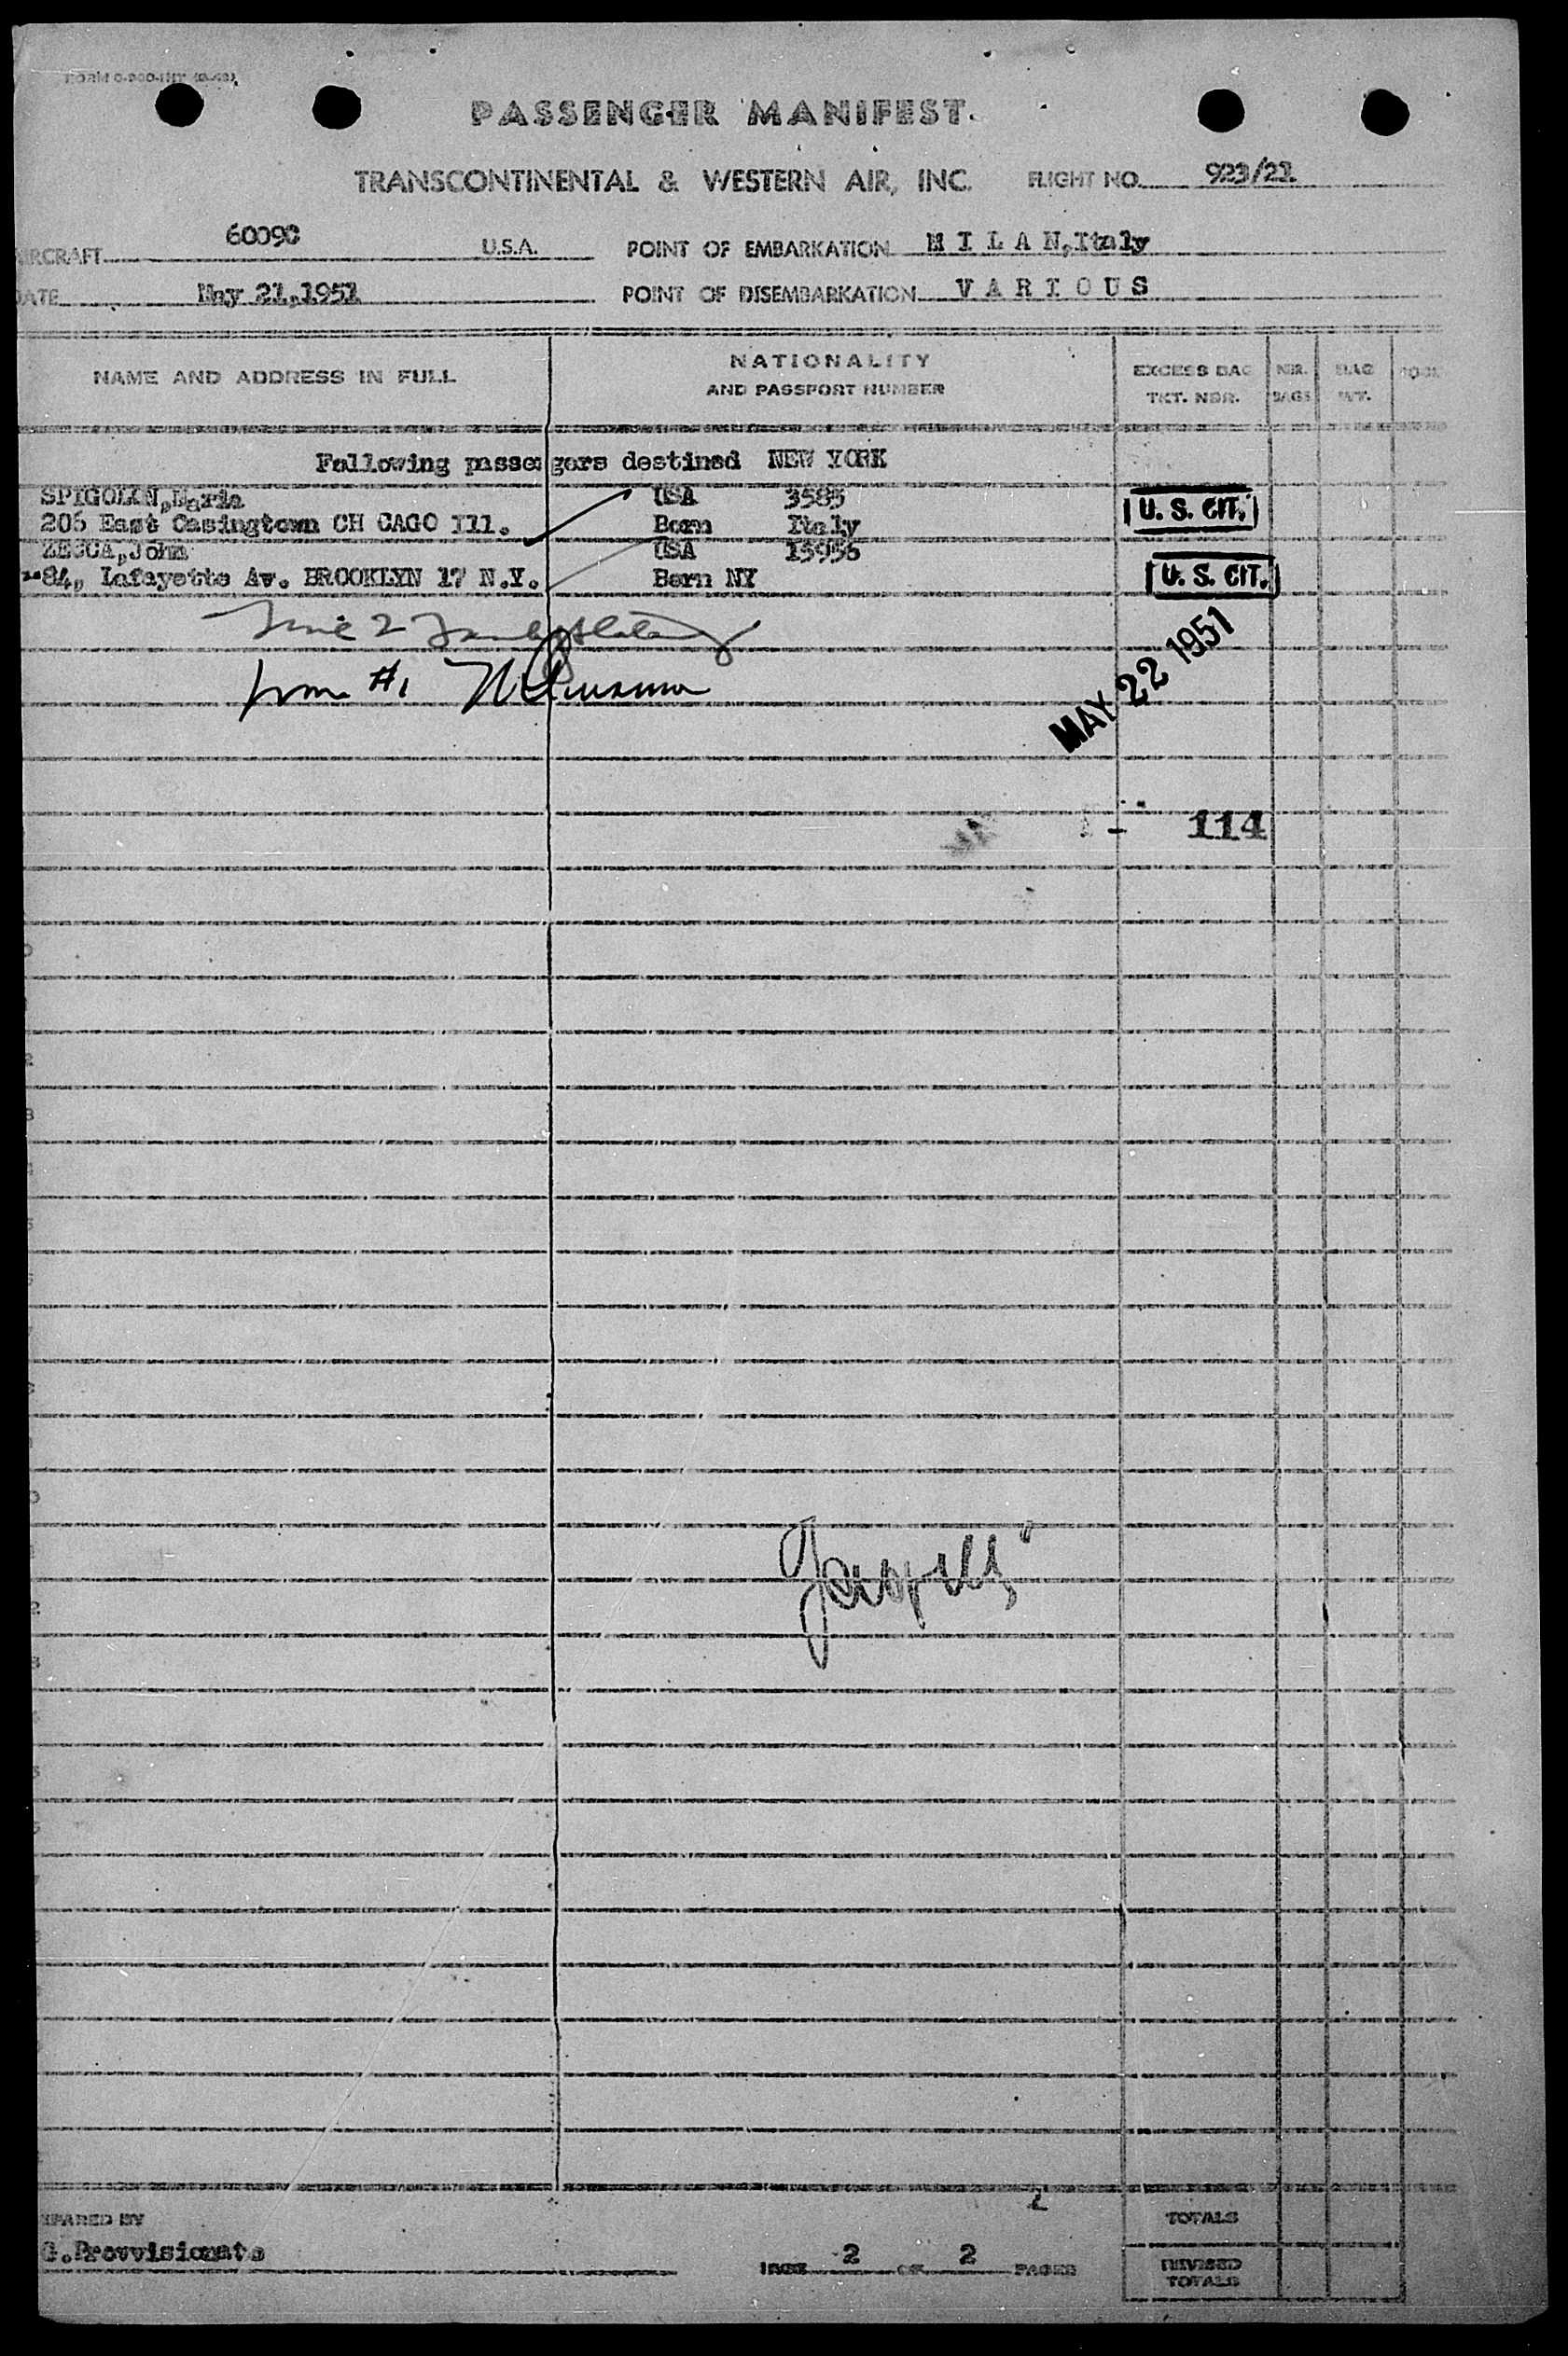 PASSENGER MANIFEST.
TRANSCONTINENTAL & WESTERN AIR, INC. FLIGHT NO. 923/21
AIRCRAFT 60090 U.S.A. POINT OF EMBARKATION M I L A N, Italy
DATE May 21,1951 POINT OF DISEMBARKATION V A R I O U S
NAME AND ADDRESS IN FULL
NATIONALITY
AND PASSPORT NUMBER
EXCESS BAG
TKT. NBR.
NBR.
BAGS
BAG
WT.
Following passengers destined NEW YORK
SPIGOLON,Maria USA 3585
206 East Casingtown CH CAGO Ill. Born Italy
U. S. CIT.
ZECCA,John USA 15956
84, Lafayette Av. BROOKLYN 17 N.Y. Born NY
U. S. CIT.
Line 2
from #1
MAY 22 1951
- 114
2
PREPARED BY
G.Provvisionato
PAGE 2 OF 2 PAGES
TOTALS
REVISED
TOTALS